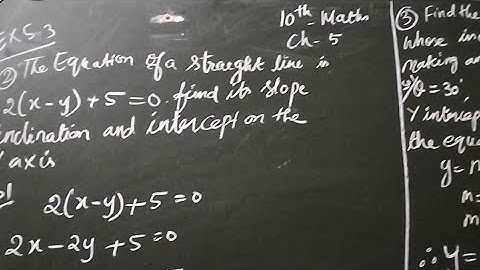 EX 5.3
10th - Maths
Ch - 5
② The Equation of a straight line is
2(x-y)+5=0. find its slope
inclination and intercept on the
Y axis
2(x-y)+5=0
2x-2y+5=0
③ Find the
whose in
making an
θ=30°,
Y intercep
the equa
y=m
m=
m
∴ y=